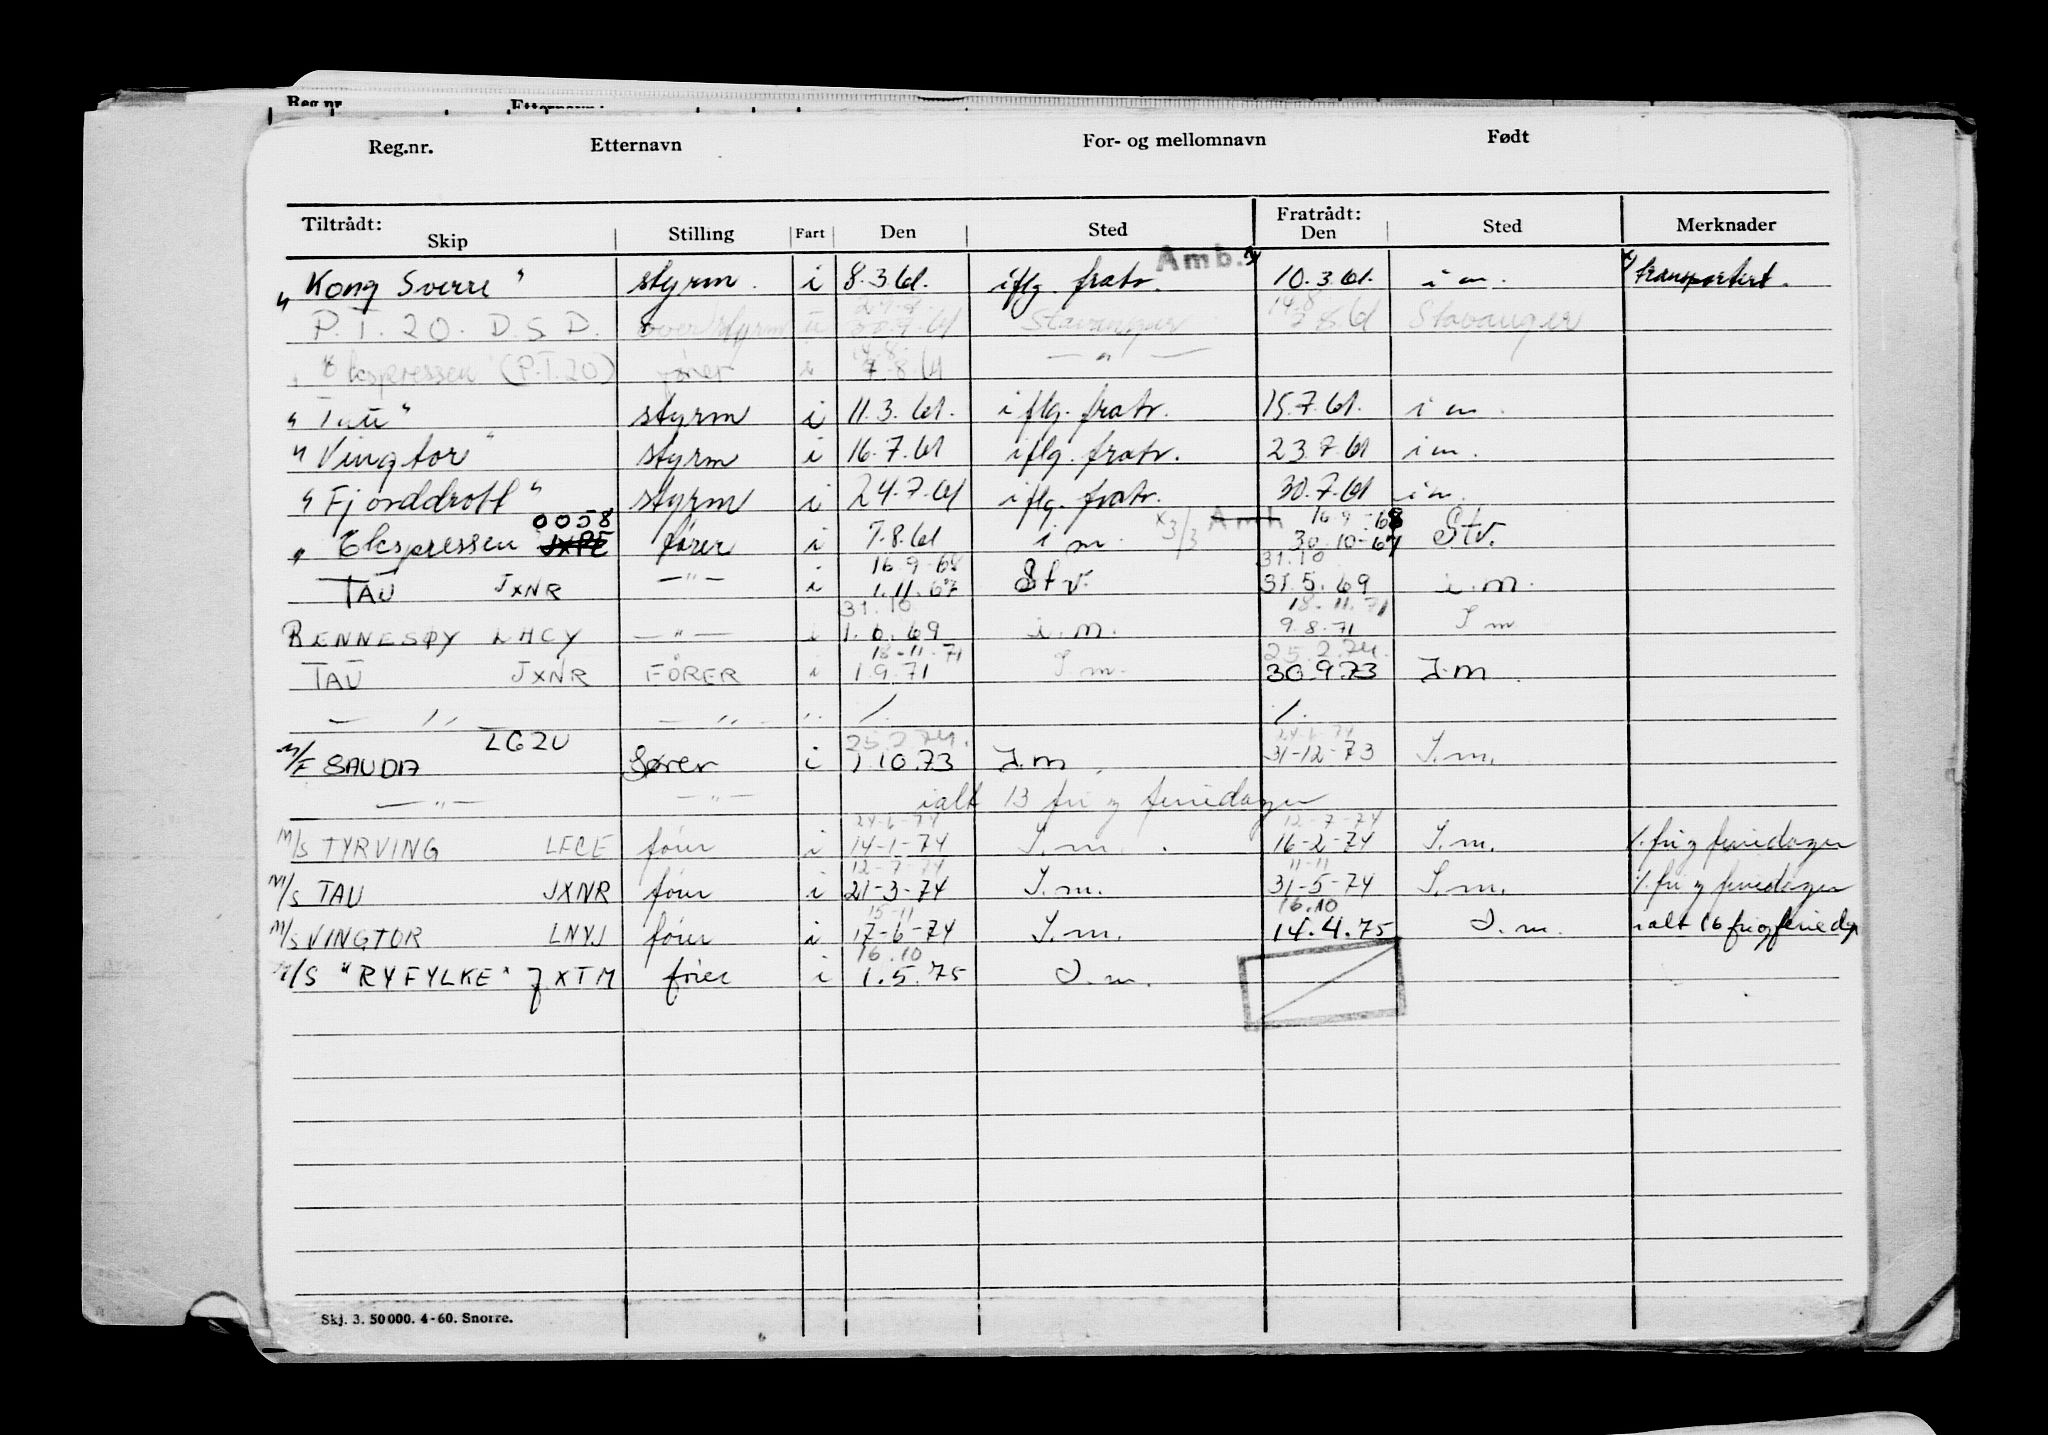 Reg.nr. Etternavn :
Reg.nr. Etternavn For- og mellomnavn Født
Tiltrådt: Fratrådt:
Skip Stilling Fart Den Sted Den Sted Merknader
Amb. x
"Kong Sverre" styrm. i 8.3.61. iflg. fratr. 10.3.61. i m. x) transportert.
P.T. 20. D.S.D. overstyrm 61 Stavanger 14.8 7.8.61 Stavanger
"Ekspressen (P.T.20) fører i 14.8. 7.8.61 — " —
" " styrm i 11.3.61. iflg. fratr. 15.7.61. i m.
"Vingtor" styrm i 16.7.61 iflg. fratr. 23.7.61 i m.
"Fjorddrott" styrm i 24.7.61 iflg. fratr. 30.7.61 i m.
0058 x3/3 Amb 16.9-68
"Ekspressen" JXPE fører i 7.8.61 i m. 30.10-67 Stv.
16.9-68 31.10
TAU JXNR —"— i 1.11.67 Stv. 31.5.69 i.m.
31.10 18-11.71
RENNESØY LHCY —"— i 1.6.69 i.m. 9.8.71 I m
18-11-71 25.2.74.
TAU JXNR FØRER i 1.9.71 I m. 30.9.73 I.m.
— ,, — ,, — ,, /. /.
LGZU 25.2.74. 24-6-74
M/F SAUDA fører i 1.10.73 I.m. 31-12-73 I.m.
—"— —"— ialt 13 fri og feriedager
24-6-74 12-7-74
M/S TYRVING LFCE fører i 14-1-74 I.m. 16-2-74 I.m. /. fri og feriedager
12-7-74 11-11
M/S TAU JXNR fører i 21-3-74 I.m. 31-5-74 I.m. /. fri og feriedager
15-11 16.10
M/S VINGTOR LNYJ fører i 17-6-74 I.m. 14.4.75 I.m. ialt 16 fri og feriedg
16.10
M/S "RYFYLKE" JXTM fører i 1.5.75 I.m.
Skj. 3. 50000. 4-60. Snorre.